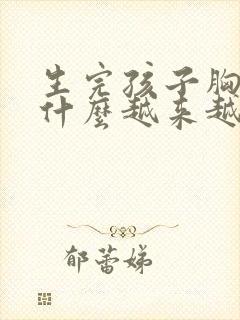 生完孩子胸
什麼越来越
郁蕾娣